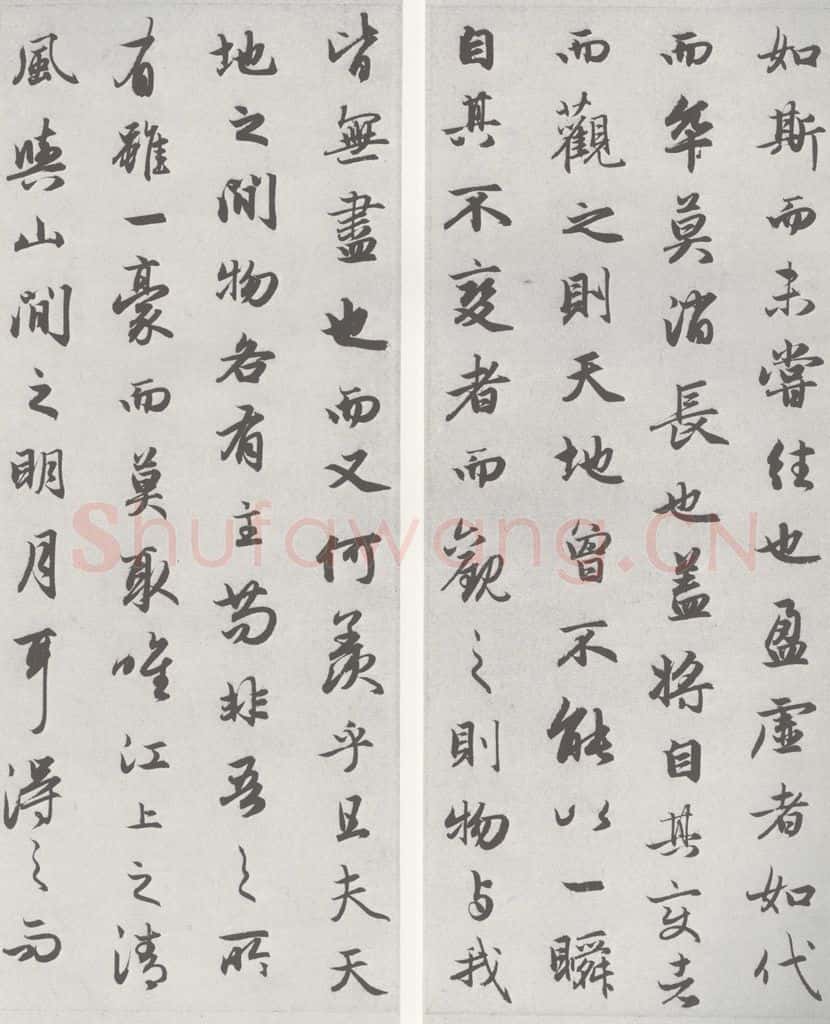 如斯而未嘗往也盈虛者如代
而卒莫消長也蓋將自其变者
而觀之則天地曾不能以一瞬
自其不变者而觀之則物与我
皆無盡也而又何羨乎且夫天
地之間物各有主茍非吾之所
有雖一豪而莫取唯江上之清
風與山間之明月耳得之而
Shufawang.CN